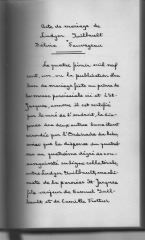 Acte de mariage de
Ludger Guilbault
&
Délina Sauvageau
Le quatre février mil neuf
cent, un, vu la publication d'un
ban de mariage faite au prône de
la messe paroissiale ici et à St-
Jacques, comme il est certifié
par le curé de l'endroit, la dis-
pense des deux autres bans étant
accordée par l'Ordinaire du dio-
cèse, que la dispense du quatri-
ème au quatrième degré de con-
sanguinité en ligne collatérale,
entre Ludger Guilbault, machi-
niste de la paroisse St-Jacques
fils majeur de Samuel Guil-
bault et de Camille Fortier